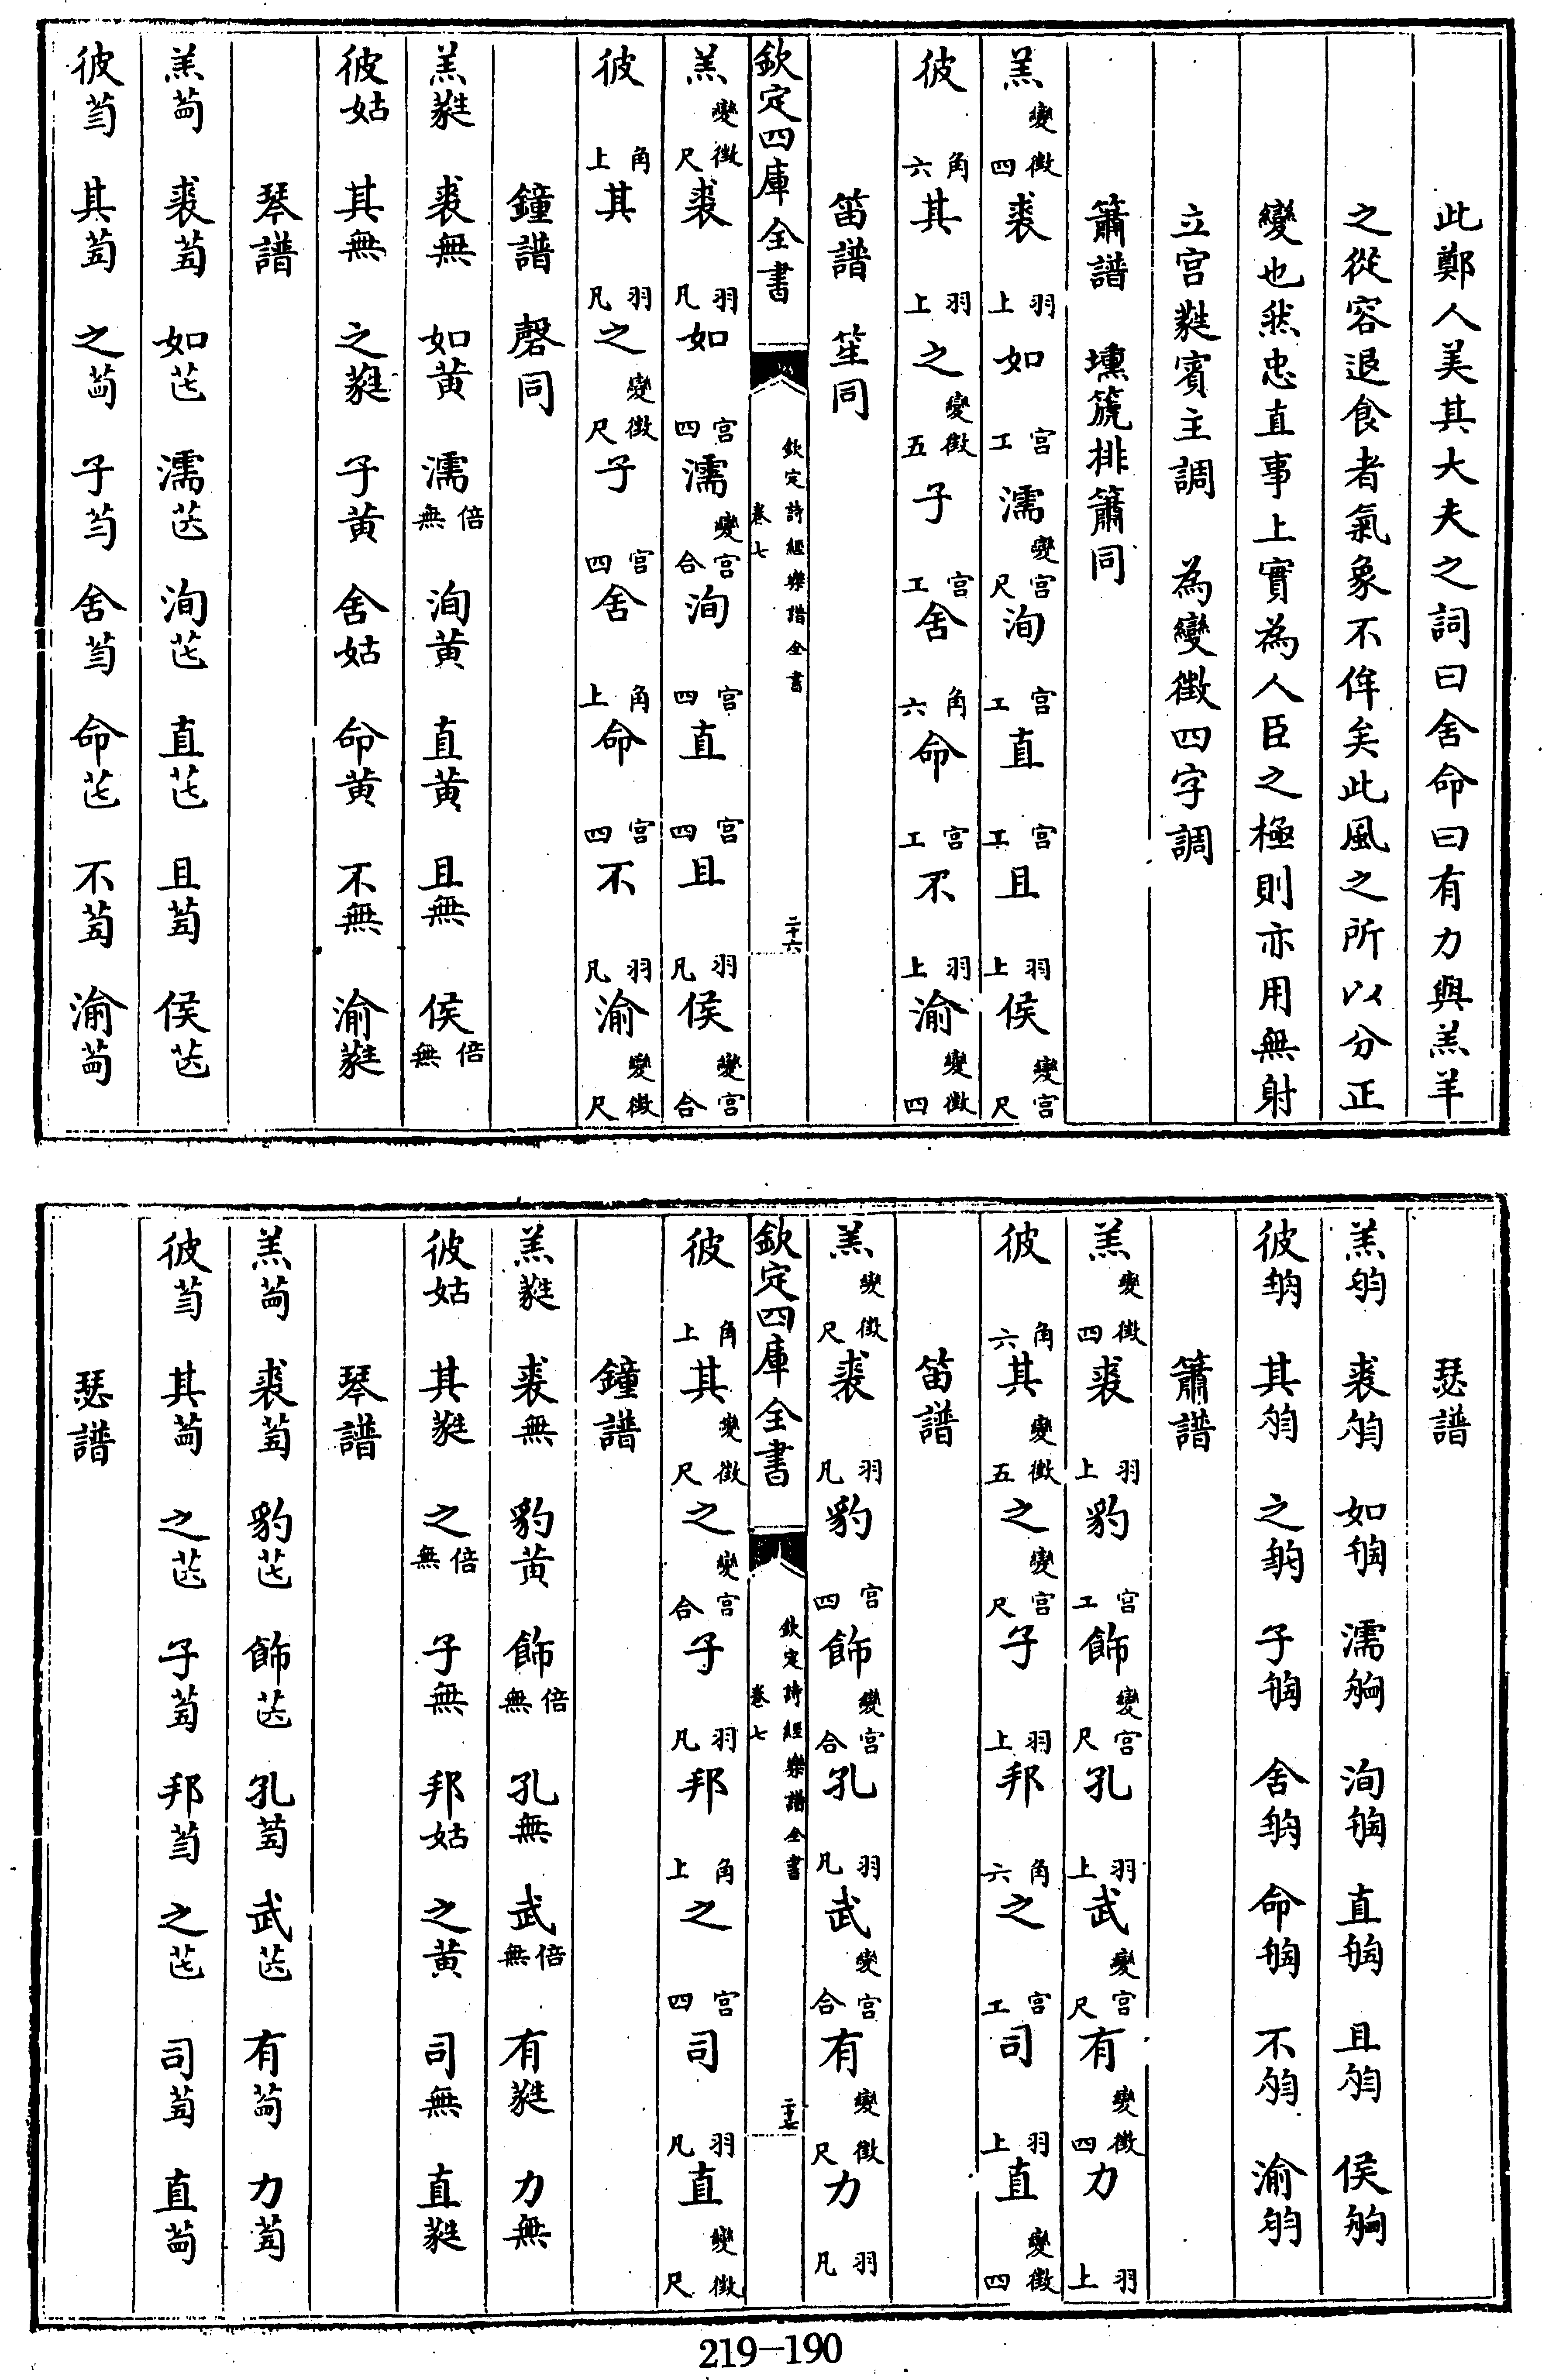 此鄭人美其大夫之詞曰舍命曰有力與羔羊
之從容退食者氣象不侔矣此風之所以分正
變也然忠直事上實為人臣之極則亦用無射
立宫蕤賓主調 為變徵四字調
簫譜 壎篪排簫同
羔變徵四 裘羽上 如宫工 濡變宫尺 洵宫工 直宫工 且羽上 侯變宫尺
彼角六 其羽上 之變徵五 子宫工 舍角六 命宫工 不羽上 渝變徵四
笛譜 笙同
欽定四庫全書
欽定詩經樂譜全書
卷七
二十六
羔變徵尺 裘羽凡 如宫四 濡變宫合 洵宫四 直宫四 且羽凡 侯變宫合
彼角上 其羽凡 之變徵尺 子宫四 舍角上 命宫四 不羽凡 渝變徵尺
鐘譜 磬同
羔蕤 裘無 如黄 濡倍無 洵黄 直黄 且無 侯倍無
彼姑 其無 之蕤 子黄 舍姑 命黄 不無 渝蕤
琴譜
羔 裘 如 濡 洵 直 且 侯
彼 其 之 子 舍 命 不 渝
瑟譜
羔 裘 如 濡 洵 直 且 侯
彼 其 之 子 舍 命 不 渝
簫譜
羔變徵四 裘羽上 豹宫工 飾變宫尺 孔羽上 武變宫尺 有變徵四 力羽上
彼角六 其變徵五 之變宫尺 子羽上 邦角六 之宫工 司羽上 直變徵四
笛譜
羔變徵尺 裘羽凡 豹宫四 飾變宫合 孔羽凡 武變宫合 有變徵尺 力羽凡
欽定四庫全書
欽定詩經樂譜全書
卷七
二十七
彼角上 其變徵尺 之變宫合 子羽凡 邦角上 之宫四 司羽凡 直變徵尺
鐘譜
羔蕤 裘無 豹黄 飾倍無 孔無 武倍無 有蕤 力無
彼姑 其蕤 之倍無 子無 邦姑 之黄 司無 直蕤
琴譜
羔 裘 豹 飾 孔 武 有 力
彼 其 之 子 邦 之 司 直
瑟譜
219-190